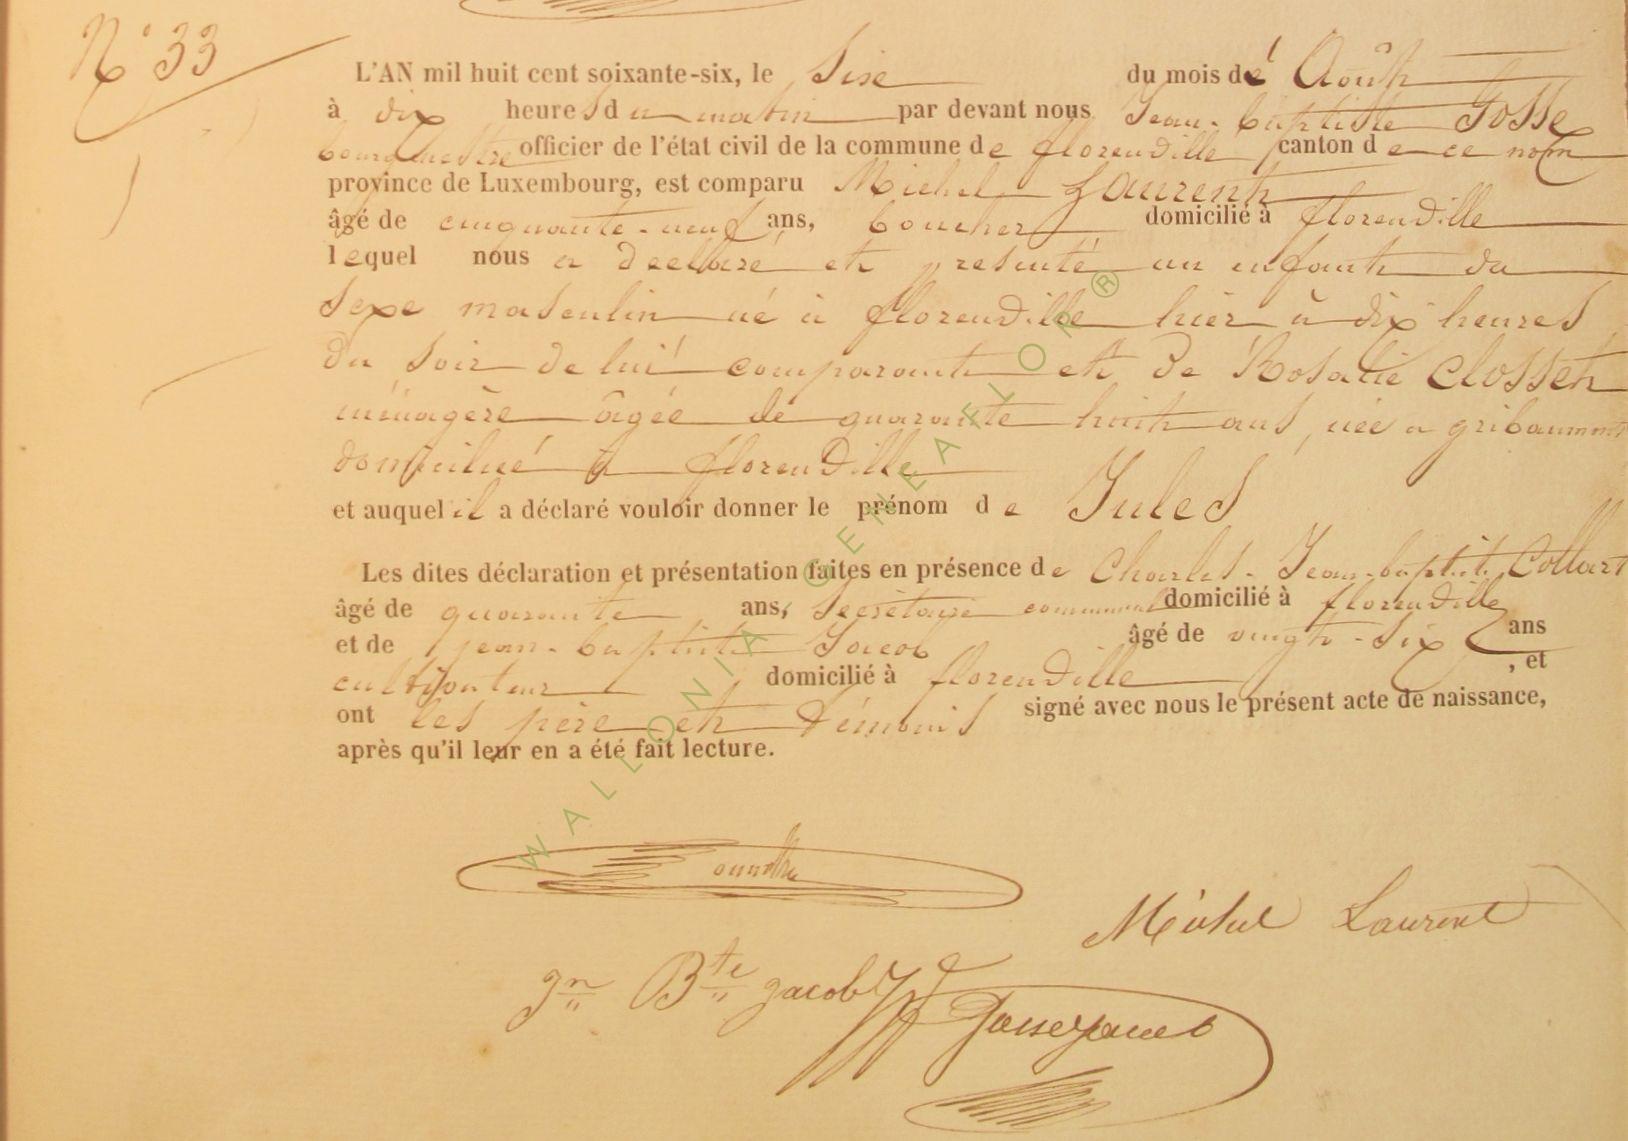 N° 33
L'AN mil huit cent soixante-six, le Sise du mois de Août
à dix heures du matin par devant nous Jean-baptiste Gosse
bourgmestre officier de l'état civil de la commune de florenville canton de ce nom
province de Luxembourg, est comparu Michel Laurent
âgé de cinquante-neuf ans, boucher domicilié à florenville
lequel nous a déclaré et présenté un enfant du
sexe masculin né à florenville hier à dix heures
du soir de lui comparant et de Rosalie Closset
ménagère âgée de quarante huit ans, née a gribaumont
domiciliée à florenville
et auquel il a déclaré vouloir donner le prénom de Jules
Les dites déclaration et présentation faites en présence de Charles-Jean-baptiste Collart
âgé de quarante ans, secrétaire communal domicilié à florenville
et de jean-baptiste Jacob âgé de vingt-six ans
cultivateur domicilié à florenville , et
ont les père et témoins signé avec nous le présent acte de naissance,
après qu'il leur en a été fait lecture.
Michel Laurent
Jn Bte jacob
WALLONIA GENEAFLOR ®